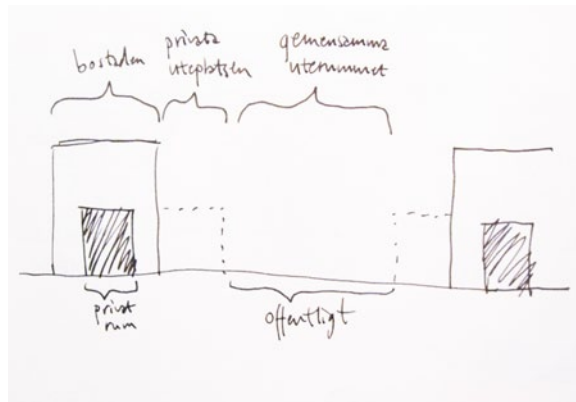 bostaden
privata
uteplatsen
gemensamma
uterummet
privat
rum
offentligt